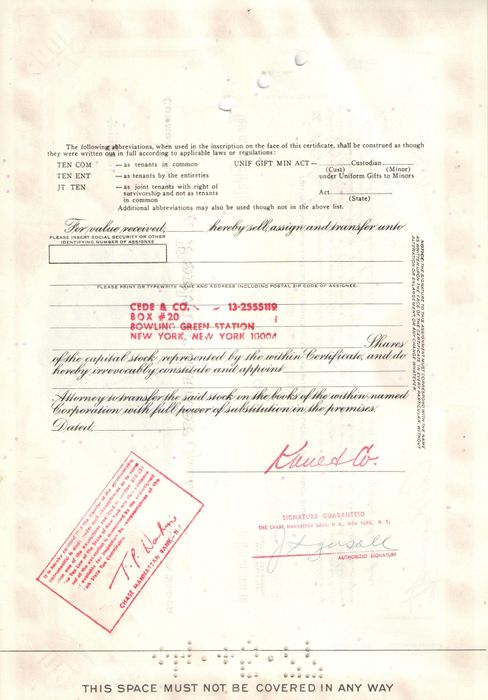 The following abbreviations, when used in the inscription on the face of this certificate, shall be construed as though
they were written out in full according to applicable laws or regulations:
TEN COM — as tenants in common UNIF GIFT MIN ACT— Custodian
(Cust) (Minor)
TEN ENT — as tenants by the entireties under Uniform Gifts to Minors
JT TEN — as joint tenants with right of Act
survivorship and not as tenants (State)
in common
Additional abbreviations may also be used though not in the above list.
For value received, hereby sell, assign and transfer unto
PLEASE INSERT SOCIAL SECURITY OR OTHER
IDENTIFYING NUMBER OF ASSIGNEE
PLEASE PRINT OR TYPEWRITE NAME AND ADDRESS INCLUDING POSTAL ZIP CODE OF ASSIGNEE.
CEDE & CO. 13-2555119
BOX #20
BOWLING GREEN STATION
NEW YORK, NEW YORK 10004
Shares
of the capital stock represented by the within Certificate, and do
hereby irrevocably constitute and appoint
Attorney to transfer the said stock on the books of the within-named
Corporation with full power of substitution in the premises.
Dated,
NOTICE: THE SIGNATURE TO THIS ASSIGNMENT MUST CORRESPOND WITH THE NAME
AS WRITTEN UPON THE FACE OF THE CERTIFICATE IN EVERY PARTICULAR, WITHOUT
ALTERATION OR ENLARGEMENT OR ANY CHANGE WHATEVER.
Kane & Co.
SIGNATURE GUARANTEED
THE CHASE MANHATTAN BANK, N. A., NEW YORK, N. Y.
AUTHORIZED SIGNATURE
CHASE MANHATTAN BANK
THIS SPACE MUST NOT BE COVERED IN ANY WAY